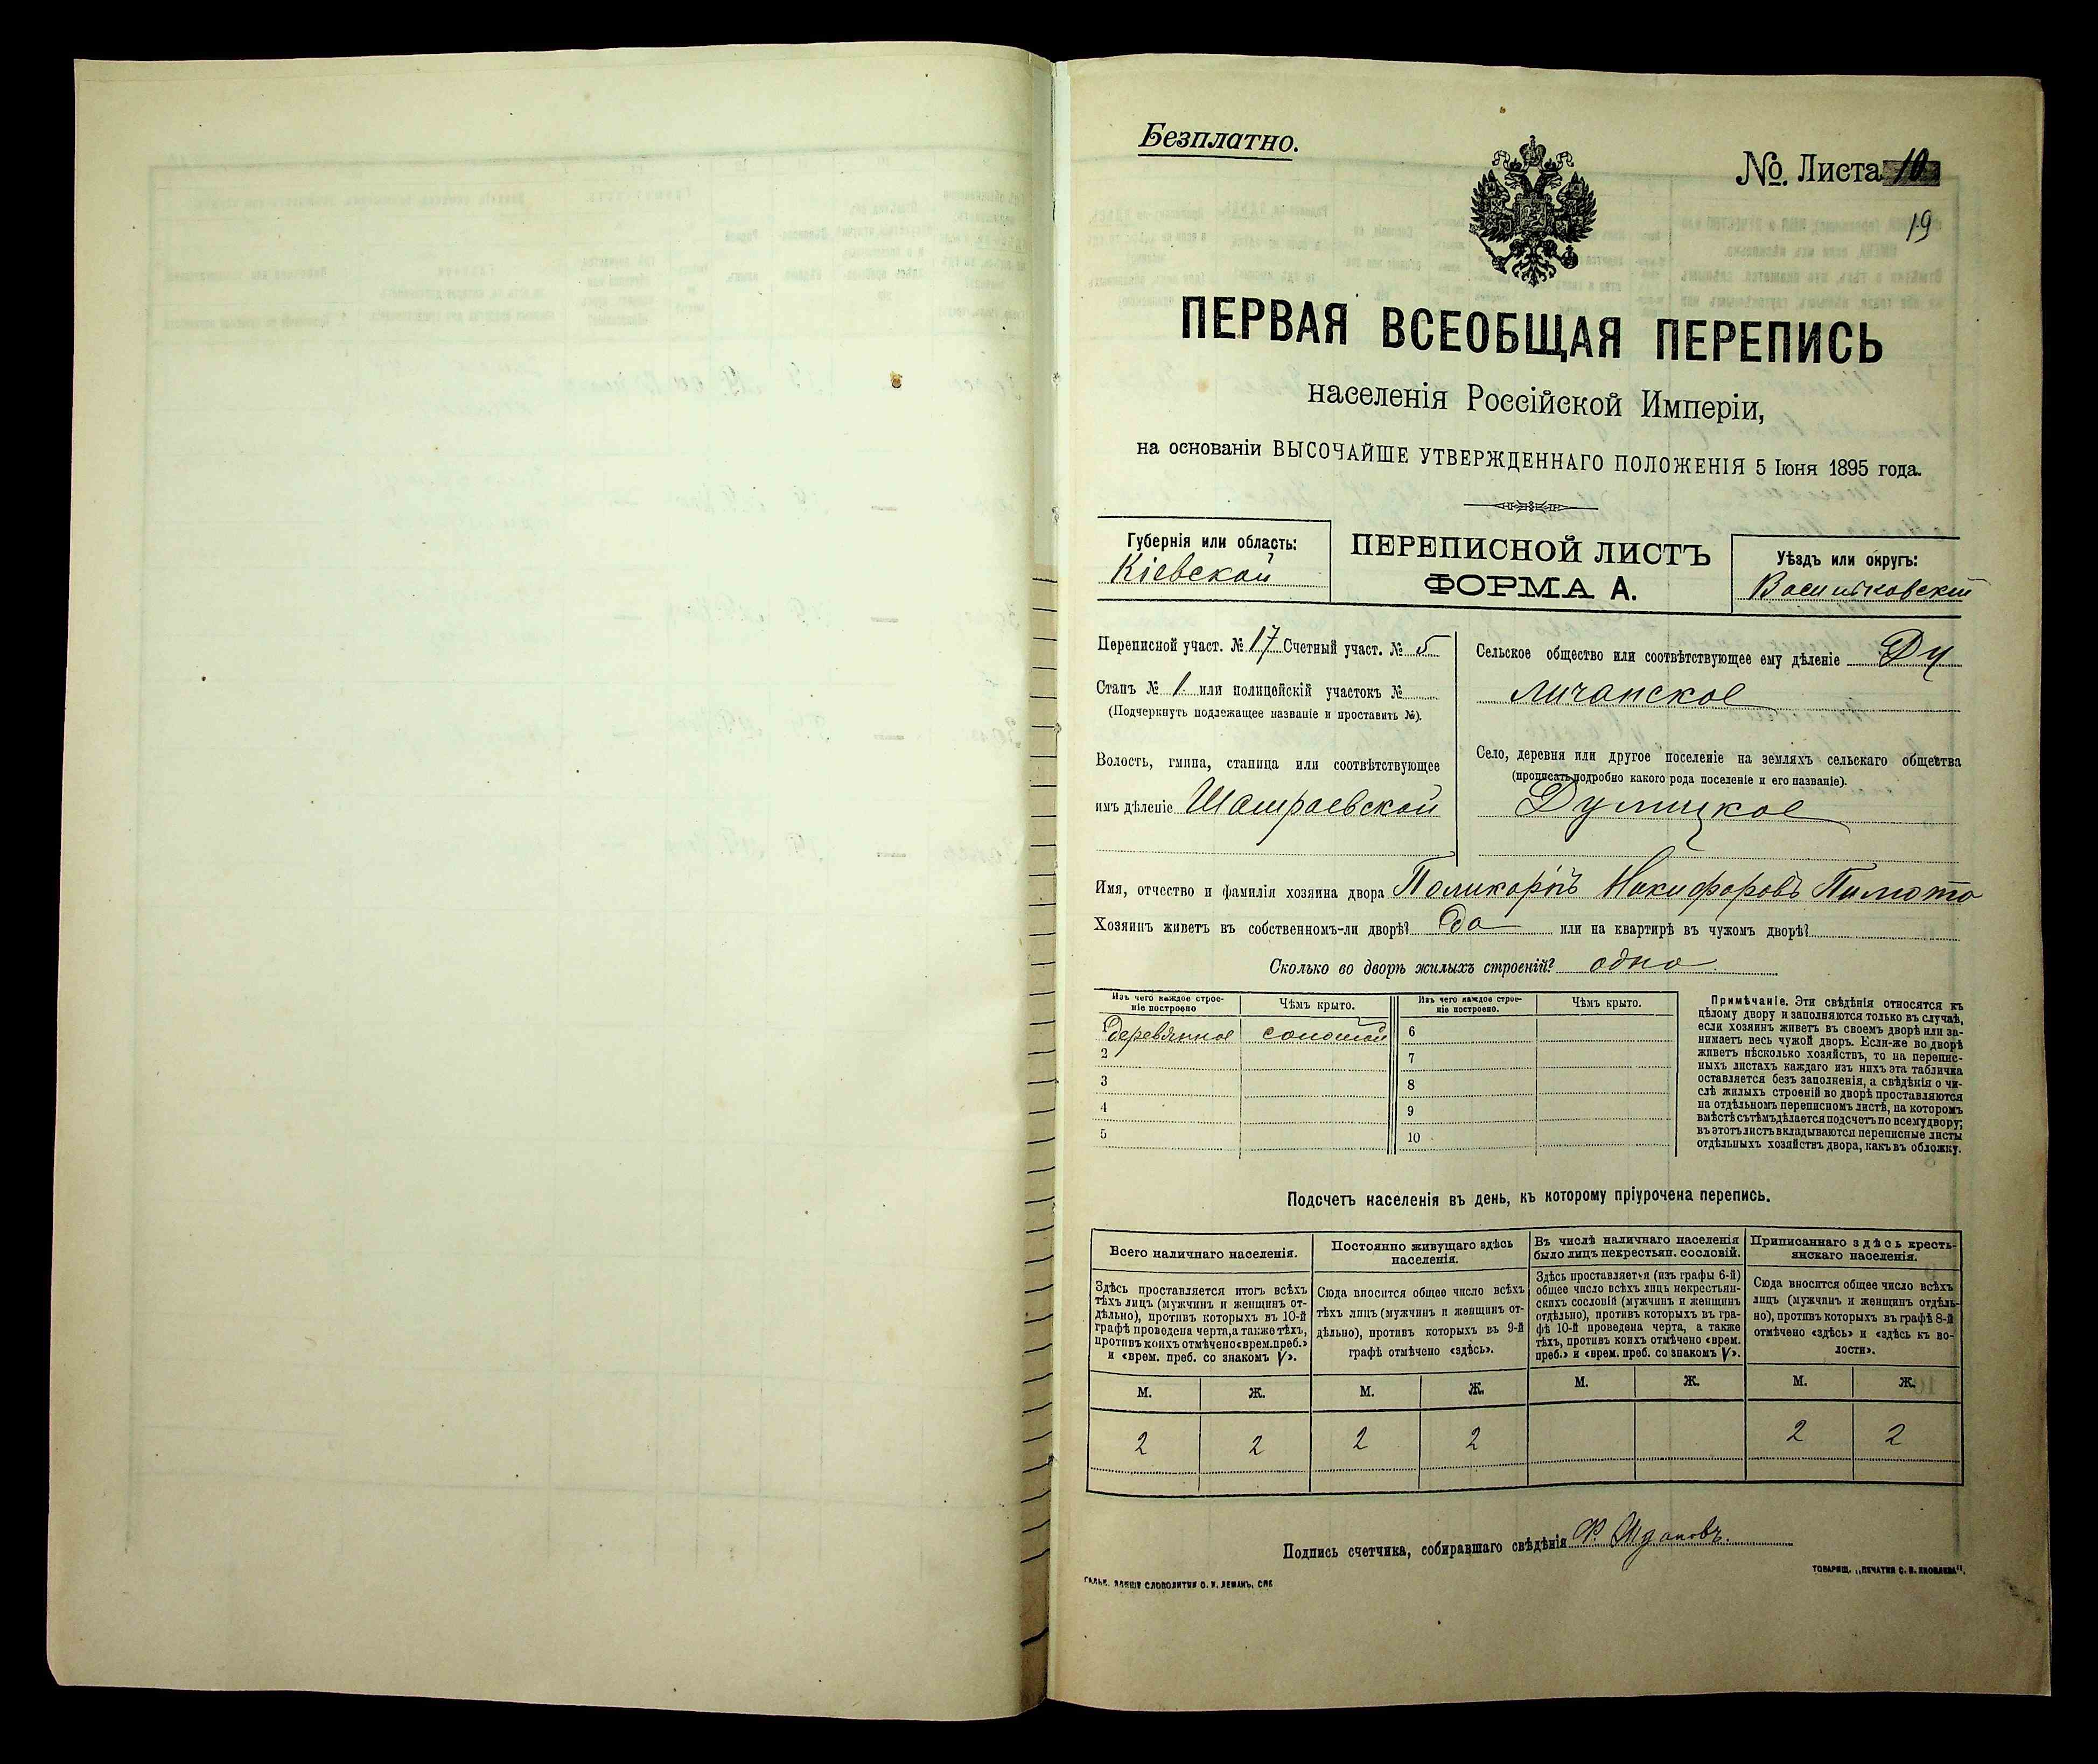 Безплатно.
№ Листа 10
19
ПЕРВАЯ ВСЕОБЩАЯ ПЕРЕПИСЬ
населенія Россійской Имперіи,
на основаніи ВЫСОЧАЙШЕ УТВЕРЖДЕННАГО ПОЛОЖЕНІЯ 5 Іюня 1895 года.
Губернія или область:
Кіевской
ПЕРЕПИСНОЙ ЛИСТЪ
ФОРМА А.
Уѣздъ или округъ:
Васильковскій
Переписной участ. № 17 Счетный участ. № 5
Станъ № 1 или полицейскій участокъ №
(Подчеркнуть подлежащее названіе и проставить №).
Волость, гмина, станица или соотвѣтствующее
имъ дѣленіе Шамраевской
Сельское общество или соотвѣтствующее ему дѣленіе Ду
личанское
Село, деревня или другое поселеніе на земляхъ сельскаго общества
(прописать подробно какого рода поселеніе и его названіе).
Дулицкое
Имя, отчество и фамилія хозяина двора Поликарпъ Никифоровъ
Хозяинъ живетъ въ собственномъ-ли дворѣ? Да или на квартирѣ въ чужомъ дворѣ?
Сколько во дворѣ жилыхъ строеній? одно
Изъ чего каждое строе-
ніе построено
Чѣмъ крыто.
Изъ чего каждое строе-
ніе построено.
Чѣмъ крыто.
1 деревянное соломой
2
3
4
5
6
7
8
9
10
Примѣчаніе. Эти свѣдѣнія относятся къ
цѣлому двору и заполняются только въ случаѣ,
если хозяинъ живетъ въ своемъ дворѣ или за-
нимаетъ весь чужой дворъ. Если-же во дворѣ
живетъ нѣсколько хозяйствъ, то на перепис-
ныхъ листахъ каждаго изъ нихъ эта табличка
оставляется безъ заполненія, а свѣдѣнія о чи-
слѣ жилыхъ строеній во дворѣ проставляются
на отдѣльномъ переписномъ листѣ, на которомъ
вмѣстѣ съ тѣмъ дѣлается подсчетъ по всему двору;
въ этотъ листъ вкладываются переписные листы
отдѣльныхъ хозяйствъ двора, какъ въ обложку.
Подсчетъ населенія въ день, къ которому пріурочена перепись.
Всего наличнаго населенія.
Постоянно живущаго здѣсь
населенія.
Въ числѣ наличнаго населенія
было лицъ некрестьян. сословій.
Приписаннаго здѣсь кресть-
янскаго населенія.
Здѣсь проставляется итогъ всѣхъ
тѣхъ лицъ (мужчинъ и женщинъ от-
дѣльно), противъ которыхъ въ 10-й
графѣ проведена черта, а также тѣхъ,
противъ коихъ отмѣчено «врем. преб.»
и «врем. преб. со знакомъ V».
Сюда вносится общее число всѣхъ
тѣхъ лицъ (мужчинъ и женщинъ от-
дѣльно), противъ которыхъ въ 9-й
графѣ отмѣчено «здѣсь».
Здѣсь проставляется (изъ графы 6-й)
общее число всѣхъ лицъ некрестьян-
скихъ сословій (мужчинъ и женщинъ
отдѣльно), противъ которыхъ въ гра-
фѣ 10-й проведена черта, а также
тѣхъ, противъ коихъ отмѣчено «врем.
преб.» и «врем. преб. со знакомъ V».
Сюда вносится общее число всѣхъ
лицъ (мужчинъ и женщинъ отдѣль-
но), противъ которыхъ въ графѣ 8-й
отмѣчено «здѣсь» и «здѣсь къ во-
лости».
М. Ж. М. Ж. М. Ж. М. Ж.
2 2 2 2 2 2
Подпись счетчика, собиравшаго свѣдѣнія
СЛОВОЛИТНИ О. И. ЛЕМАНЪ, СПБ
ТОВАРИЩ. „ПЕЧАТНЯ С. П. ЯКОВЛЕВА“.